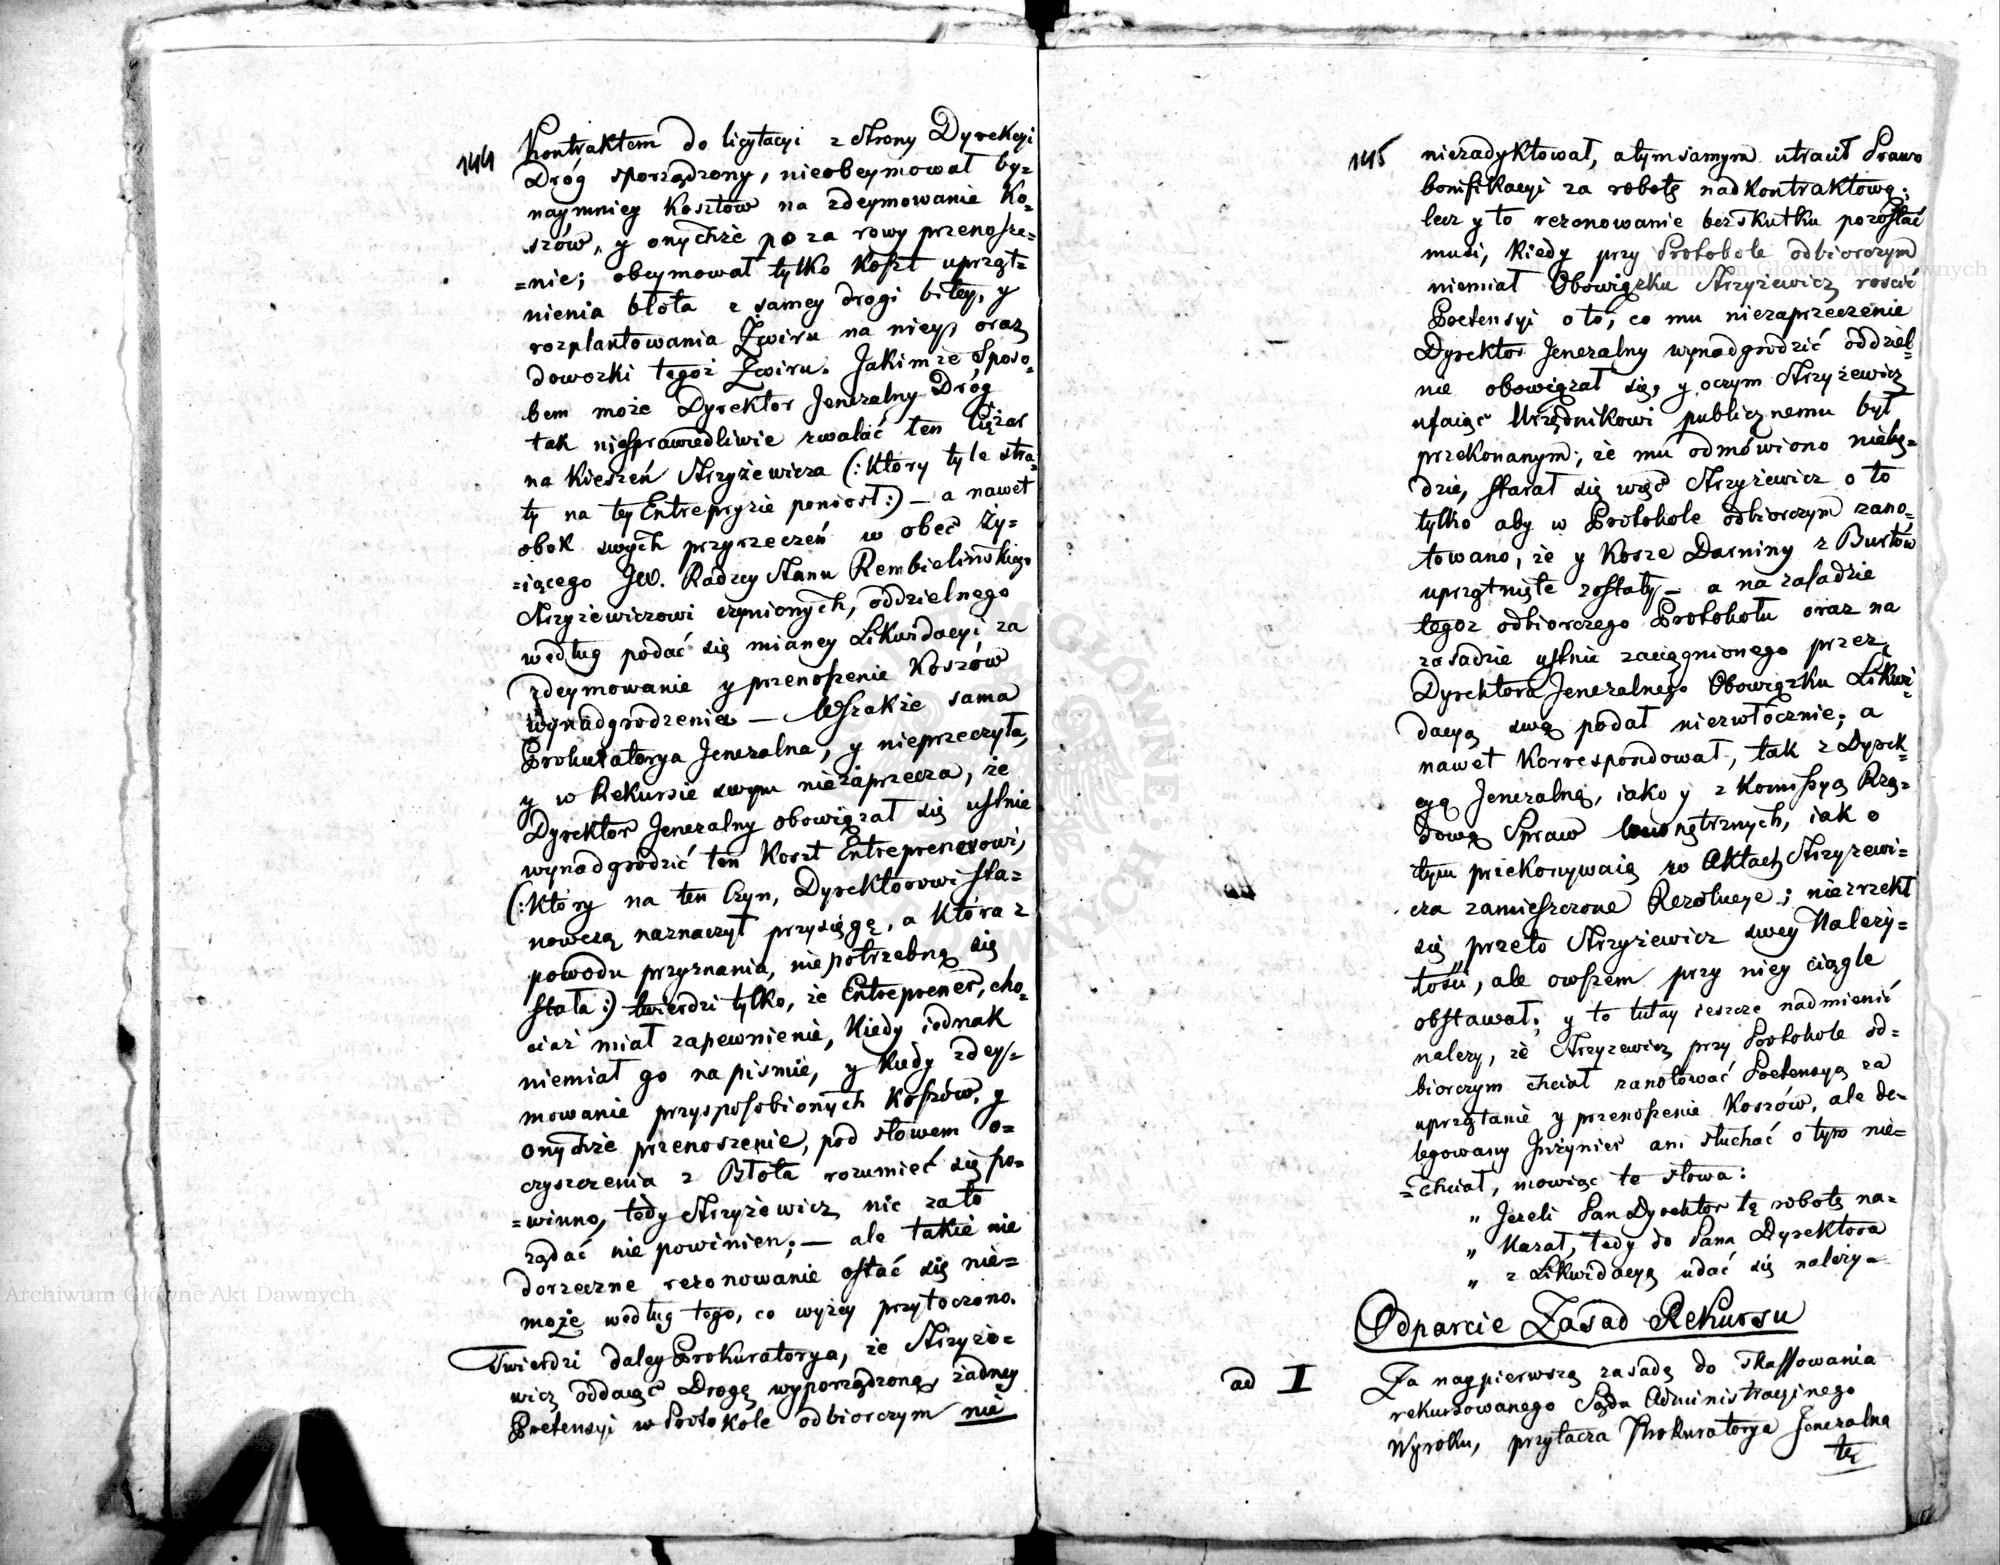 144
Kontraktem do licytacyi z strony Dyrekcyi
Dróg sporządzony, nieobeymował by=
naymniey Kosztów na zdeymowanie Ko=
szów, y onychże poza rowy przenosze=
=nie; obeymował tylko Koszt uprząt=
nienia błota z samey drogi bitey, y
rozplantowania Żwiru na niey, oraz
dowozki tegoż Żwiru. Jakimże Sposo=
bem może Dyrektor Jeneralny Dróg
tak niesprawiedliwie zwalać ten Ciężar
na Kieszeń Strzyżewicza (: Który tyle stra=
ty na tey Entrepryzie poniosł :) — a nawet
obok swych przyrzeczeń w obec Ży=
=iącego JW. Radzcy Stanu Rembielińskiego
Strzyżewiczowi czynionych, oddzielnego
według podać się mianey Likwidacyi za
zdeymowanie y przenoszenie Koszów
wynadgrodzenia — Wszakże sama
Prokuratorya Jeneralna, y nieprzeczyła,
y w Rekursie swym niezaprzecza, że
Dyrektor Jeneralny obowiązał się ustnie
wynadgrodzić ten Koszt Entreprenerowi,
(: Który na ten Czyn, Dyrektorowi sta=
nowczą naznaczył przysięgę, a Która z
powodu przyznania, niepotrzebną się
stała :) twierdzi tylko, że Entreprener, cho=
ciaż miał zapewnienie, Kiedy jednak
niemiał go na pismie, y Kiedy zdey=
mowanie przysposobionych Koszów, y
onychże przenoszenie, pod słowem o=
czyszczenia z Błota rozumieć się po=
=winno, tedy Strzyżewicz nic za to
żądać nie powinien; — ale takie nie
dorzeczne rezonowanie ostać się nie=
może według tego, co wyżey przytoczono.
Twierdzi daley Prokuratorya, że Strzyże=
wicz oddaiąc Drogę wyporządzoną, żadney
Pretensyi w Protokole odbiorczym nie
145
niezadyktował, a tym samym utracił Prawo
bonifikacyi za robotę nadkontraktową;
lecz y to rezonowanie bez skutku pozostać
musi, Kiedy przy Protokole odbiorczym
niemiał Obowiązku Strzyżewicz rościć
Pretensyi o to, co mu niezaprzeczenie
Dyrektor Jeneralny wynadgrodzić oddziel=
nie obowiązał się, y oczym Strzyżewicz
ufaiąc Urzędnikowi publicznemu był
przekonanym, że mu odmówiono niebę=
dzie, starał się więc Strzyżewicz o to
tylko aby w Protokole odbiorczym zano=
towano, że y Kosze Darniny z Burtów
uprzątnięte zostały — a na zasadzie
tegoż odbiorczego Protokołu oraz na
zasadzie ustnie zaciągnionego przez
Dyrektora Jeneralnego Obowiązku Likwi=
dacyą swą podał niezwłócznie; a
nawet Korrespondował, tak z Dyrek=
cyą Jeneralną, iako y z Kommissyą Rzą=
dową Spraw Wewnętrznych, iak o
tym przekonywaią w Aktach Strzyżewi=
cza zamieszczone Rezolucye; niezrzekł
się przeto Strzyżewicz swey Należy=
tości, ale owszem przy niey ciągle
obstawał; y to tutay ieszcze nadmienić
należy, że Strzyżewicz przy Protokole od=
biorczym chciał zanotować Pretensyą za
uprzątanie y przenoszenie Koszów, ale de=
legowany Inżynier ani słuchać o tym nie=
=chciał, mowiąc te słowa:
„ Jeżeli Pan Dyrektor tę robotę na=
„ Kazał, tedy do Pana Dyrektora
„ z Likwidacyą udać się należy —
Odparcie Zasad Rekursu
ad I
Za naypierwszą zasadę do skassowania
rekursowanego Sądu Administracyjnego
Wyroku, przytacza Prokuratorya Jeneralna
tę
Archiwum Główne Akt Dawnych
Archiwum Główne Akt Dawnych